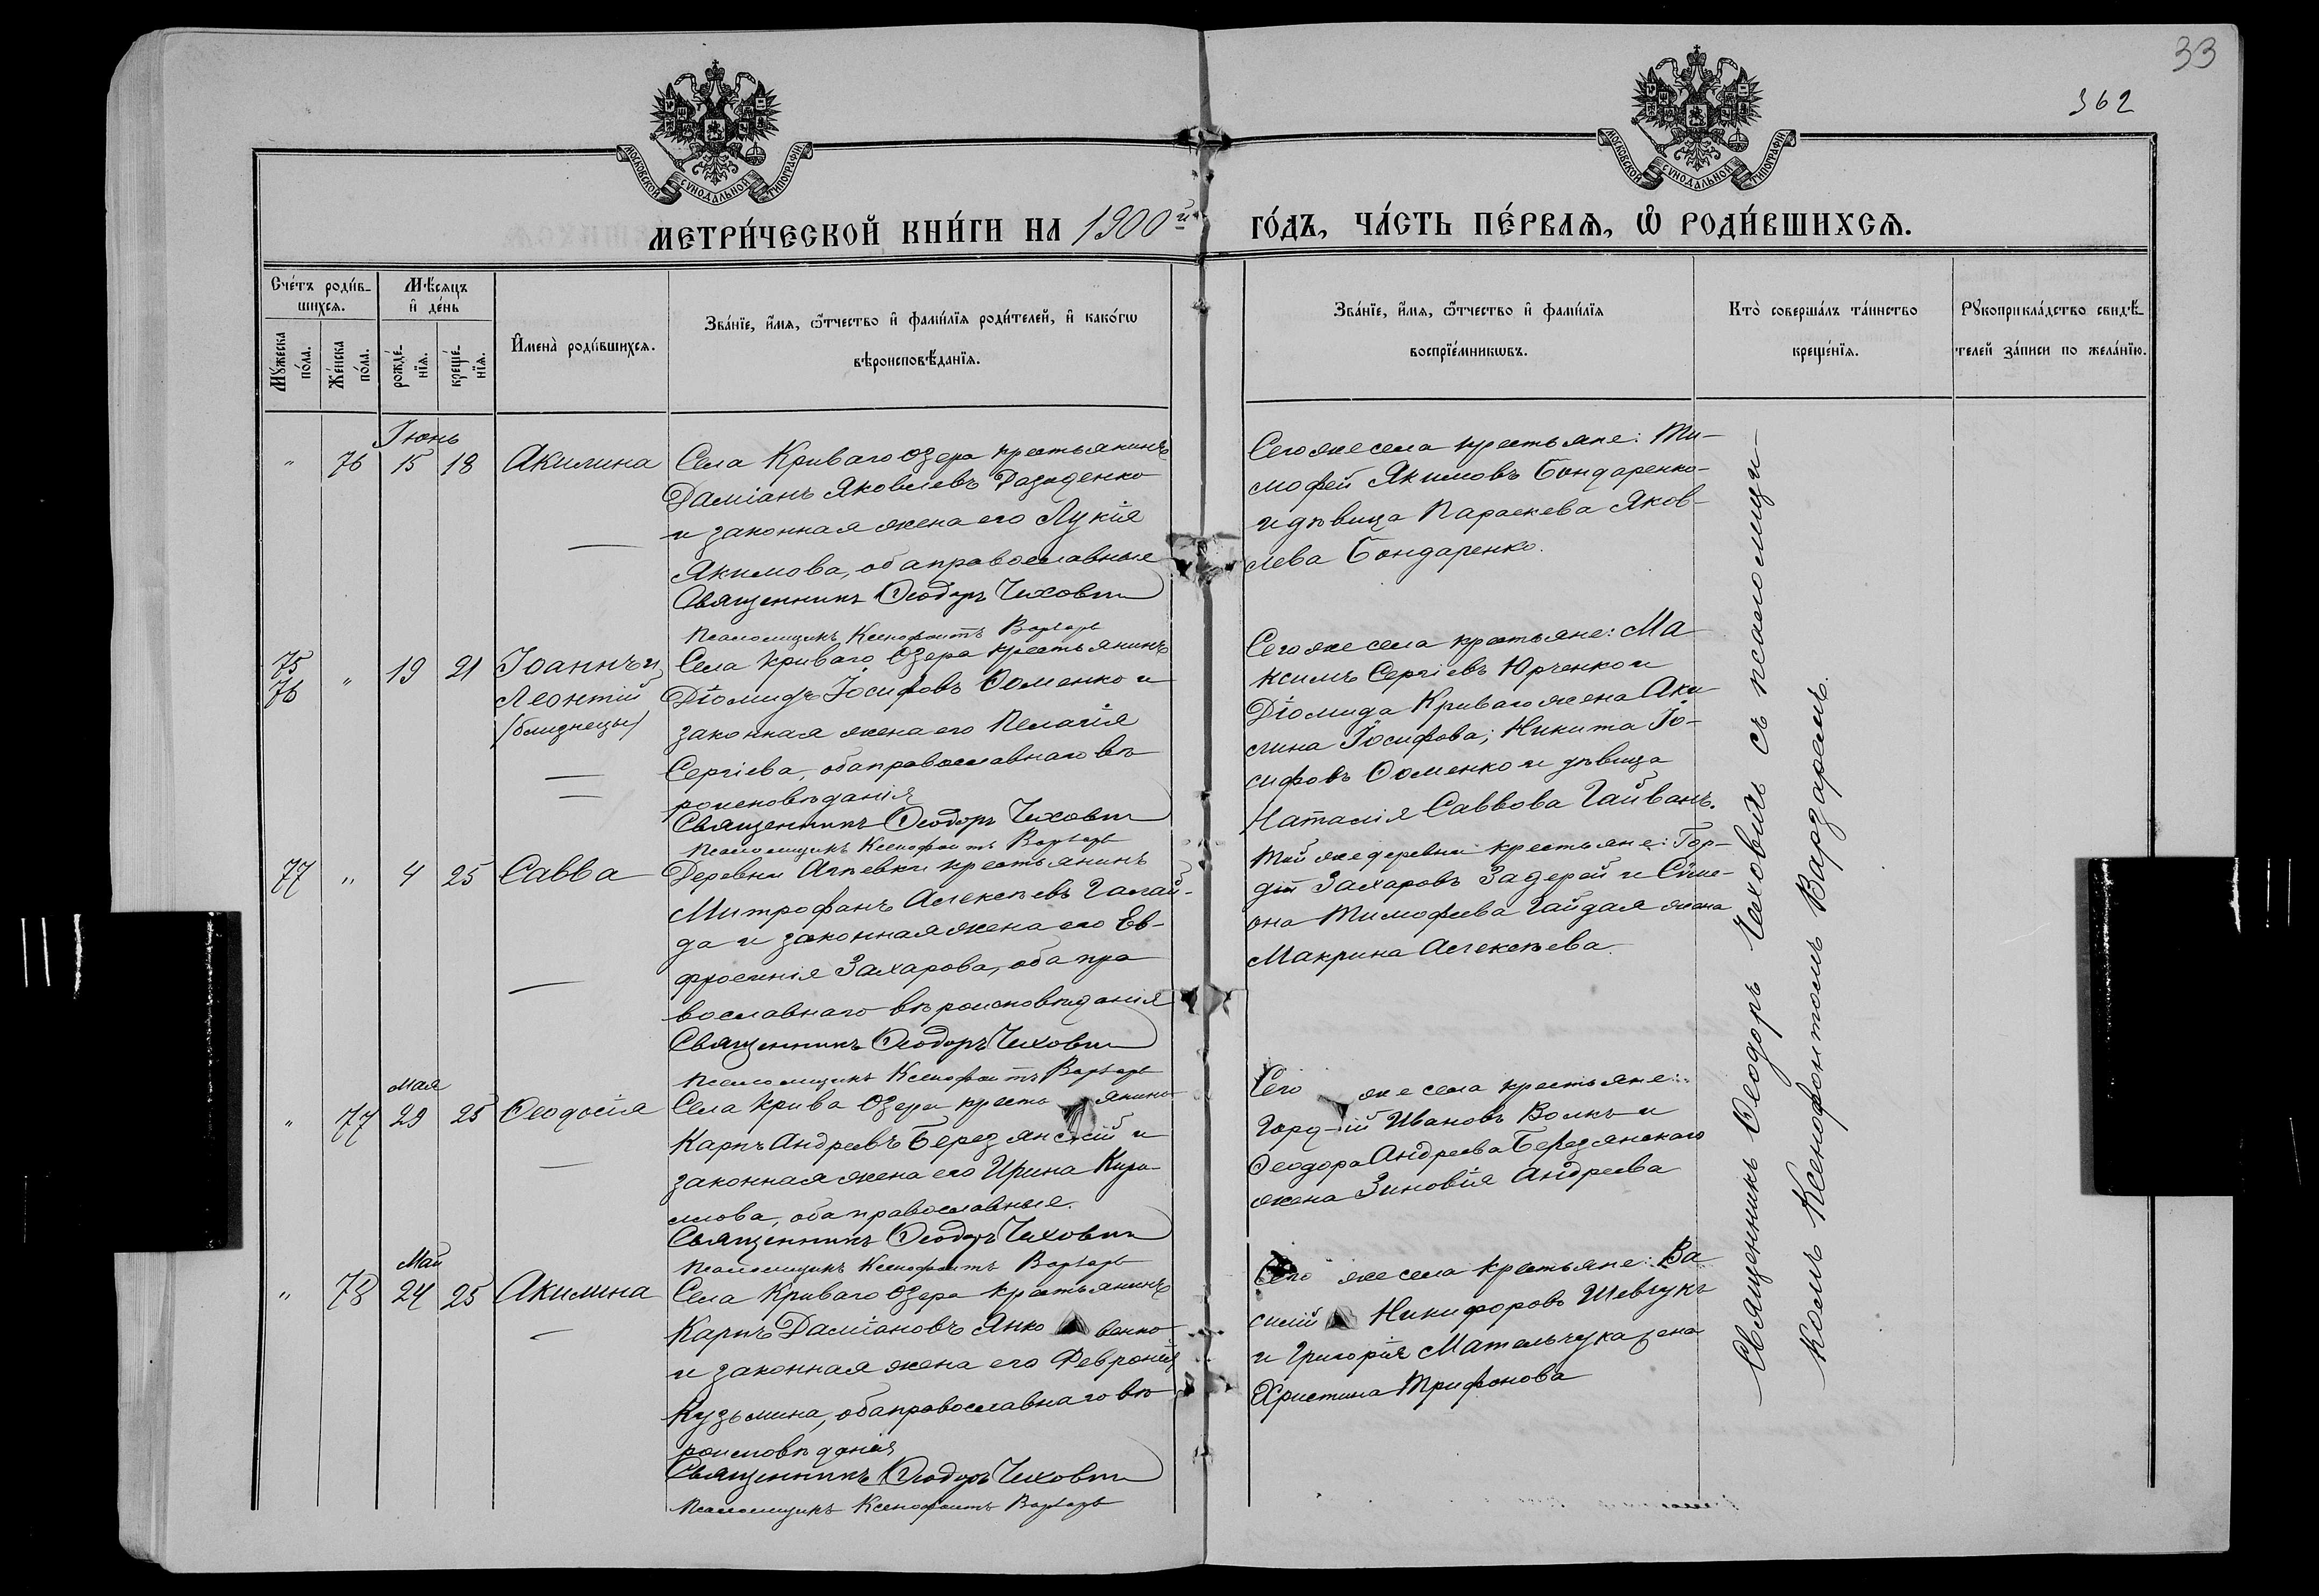 33
362
МОСКОВСКОЙ СѴНОДАЛЬНОЙ ТИПОГРАФІИ
МОСКОВСКОЙ СѴНОДАЛЬНОЙ ТИПОГРАФІИ
МЕТРИ́ЧЕСКОЙ КНИ́ГИ НА 1900й ГО́ДЪ, ЧА́СТЬ ПЕ́РВАѦ, Ѽ РОДИ́ВШИХСѦ.
Сче́тъ роди́в-
шихсѧ.
Мѣ́сѧцъ
и҆ де́нь
Мꙋ́жеска по́ла.
Же́нска по́ла.
рожде́-
нїѧ.
креще́-
нїѧ.
И҆мена̀ роди́вшихсѧ.
Зва́нїе, и҆́мѧ, ѻ҆́тчество и҆ фами́лїѧ роди́телей, и҆ како́гѡ
вѣроисповѣ́данїѧ.
Зва́нїе, и҆́мѧ, ѻ҆́тчество и҆ фами́лїѧ
воспрїе́мникѡвъ.
Кто̀ соверша́лъ та́инство
креще́нїѧ.
Рꙋкоприкла́дство свидѣ́-
телей за́писи по жела́нїю.
Іюнь
" 76 15 18 Акилина
Села Криваго Озера крестьянинъ
Даміанъ Яковлевъ
и законная жена его Лукія
Якимова, оба православные
Священникъ Ѳеодоръ Чеховичъ
Псаломщикъ Ксенофонтъ Варзаръ
Сегоже села крестьяне: Ти-
мофей Якимовъ Бондаренко
и дѣвица Параскева Яков-
лева Бондаренко.
75
76 " 19 21 Іоаннъ и
Леонтій
/близнецы/
Села Криваго Озера крестьянинъ
Діомидъ Іосифовъ Ѳоменко и
законная жена его Пелагія
Сергіева, оба православнаго вѣ
роисповѣданія
Священникъ Ѳеодоръ Чеховичъ
Псаломщикъ Ксенофонтъ Варзаръ
Сегоже села крестьяне: Ма
ксимъ Сергіевъ Юрченко и
Діомида Криваго жена Аки
лина Іосифова; Никита Іо-
сифовъ Ѳоменко и дѣвица
Наталія Саввова Гайванъ.
77 " 4 25 Савва
Деревни крестьянинъ
Митрофанъ Алексѣевъ Галай-
да и законная жена его Ев-
фросинія Захарова, оба пра
вославнаго вѣроисповѣданія
Священникъ Ѳеодоръ Чеховичъ
Псаломщикъ Ксенофонтъ Варзаръ
Той же деревни крестьяне: Гор-
дій Захаровъ Задерей и Симе-
она Тимофеева Гайдая жена
Макрина Алексѣева.
мая
" 77 29 25 Ѳеодосія
Села Крива Озера кресть янинъ
Карпъ Андреевъ Березянскій и
законная жена его Ирина Кири
лова, оба православные.
Священникъ Ѳеодоръ Чеховичъ
Псаломщикъ Ксенофонтъ Варзаръ
Сего же села крестьяне:
Гордій Ивановъ Волкъ и
Ѳеодора Андреева Березянскаго
жена Зиновія Андреева
Май
" 78 24 25 Акилина
Села Криваго Озера крестьянинъ
Карпъ Даміановъ Янко венко
и законная жена его Февронія
Кузьмина, оба православнаго вѣ
роисповѣданія
Священникъ Ѳеодоръ Чеховичъ
Псаломщикъ Ксенофонтъ Варзаръ
Сего же села крестьяне: Ва
силій Никифоровъ Шевчукъ
и Григорія Мательчука жена
Христина Трифонова
Священникъ Ѳеодоръ Чеховичъ съ псаломщи-
комъ Ксенофонтомъ Варзаромъ.